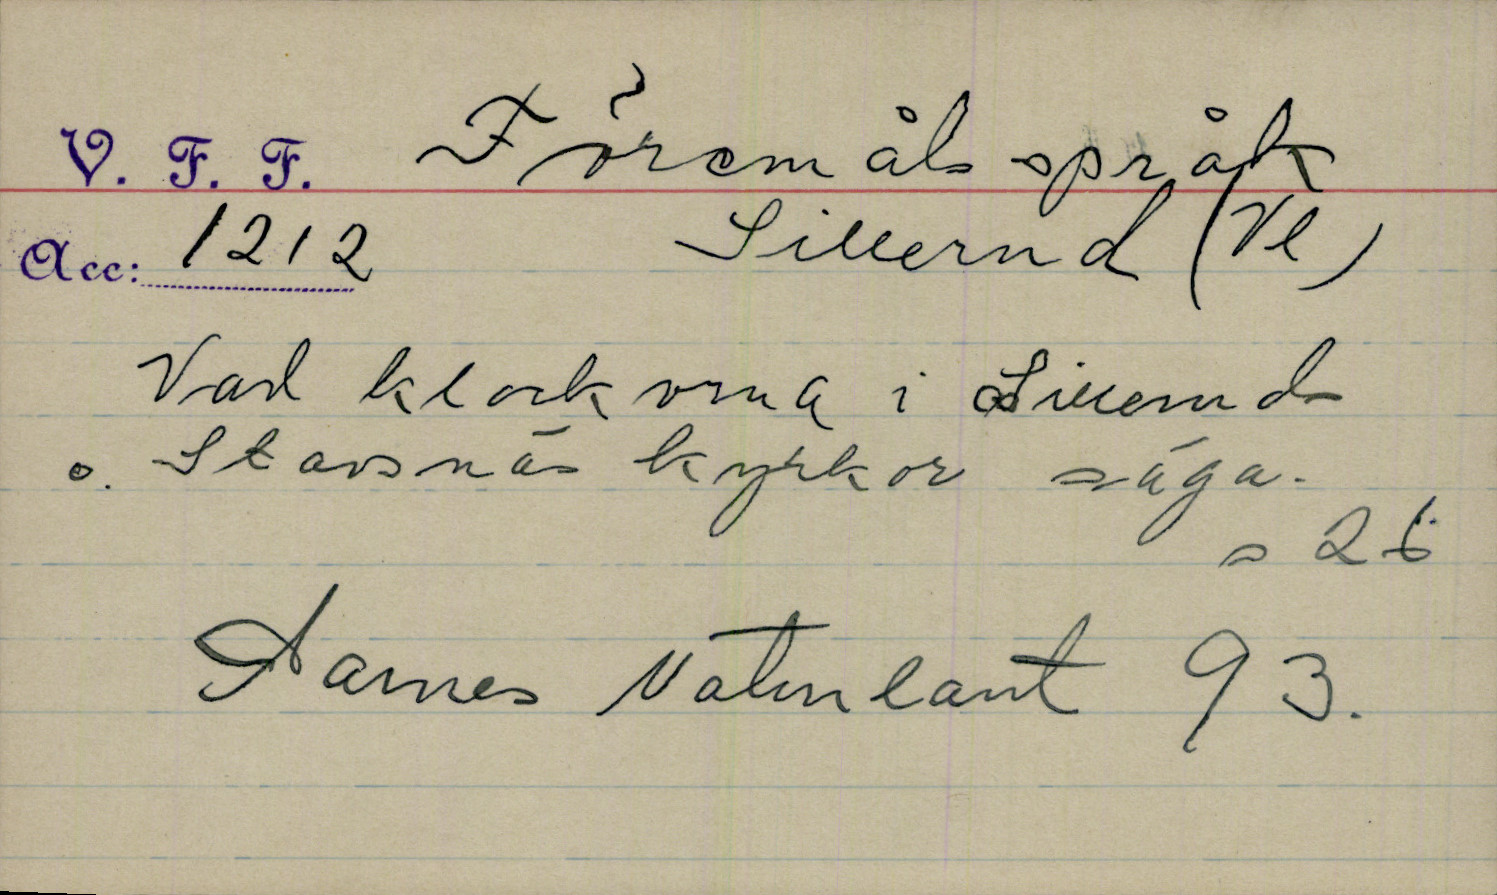 V. F. F. Föremåls språk
Acc: 1212 Sillerud (Vl)
Vad klockorna i Silleruds
o. Stavsnäs kyrkor säga.
s 26
Aarnes 93.